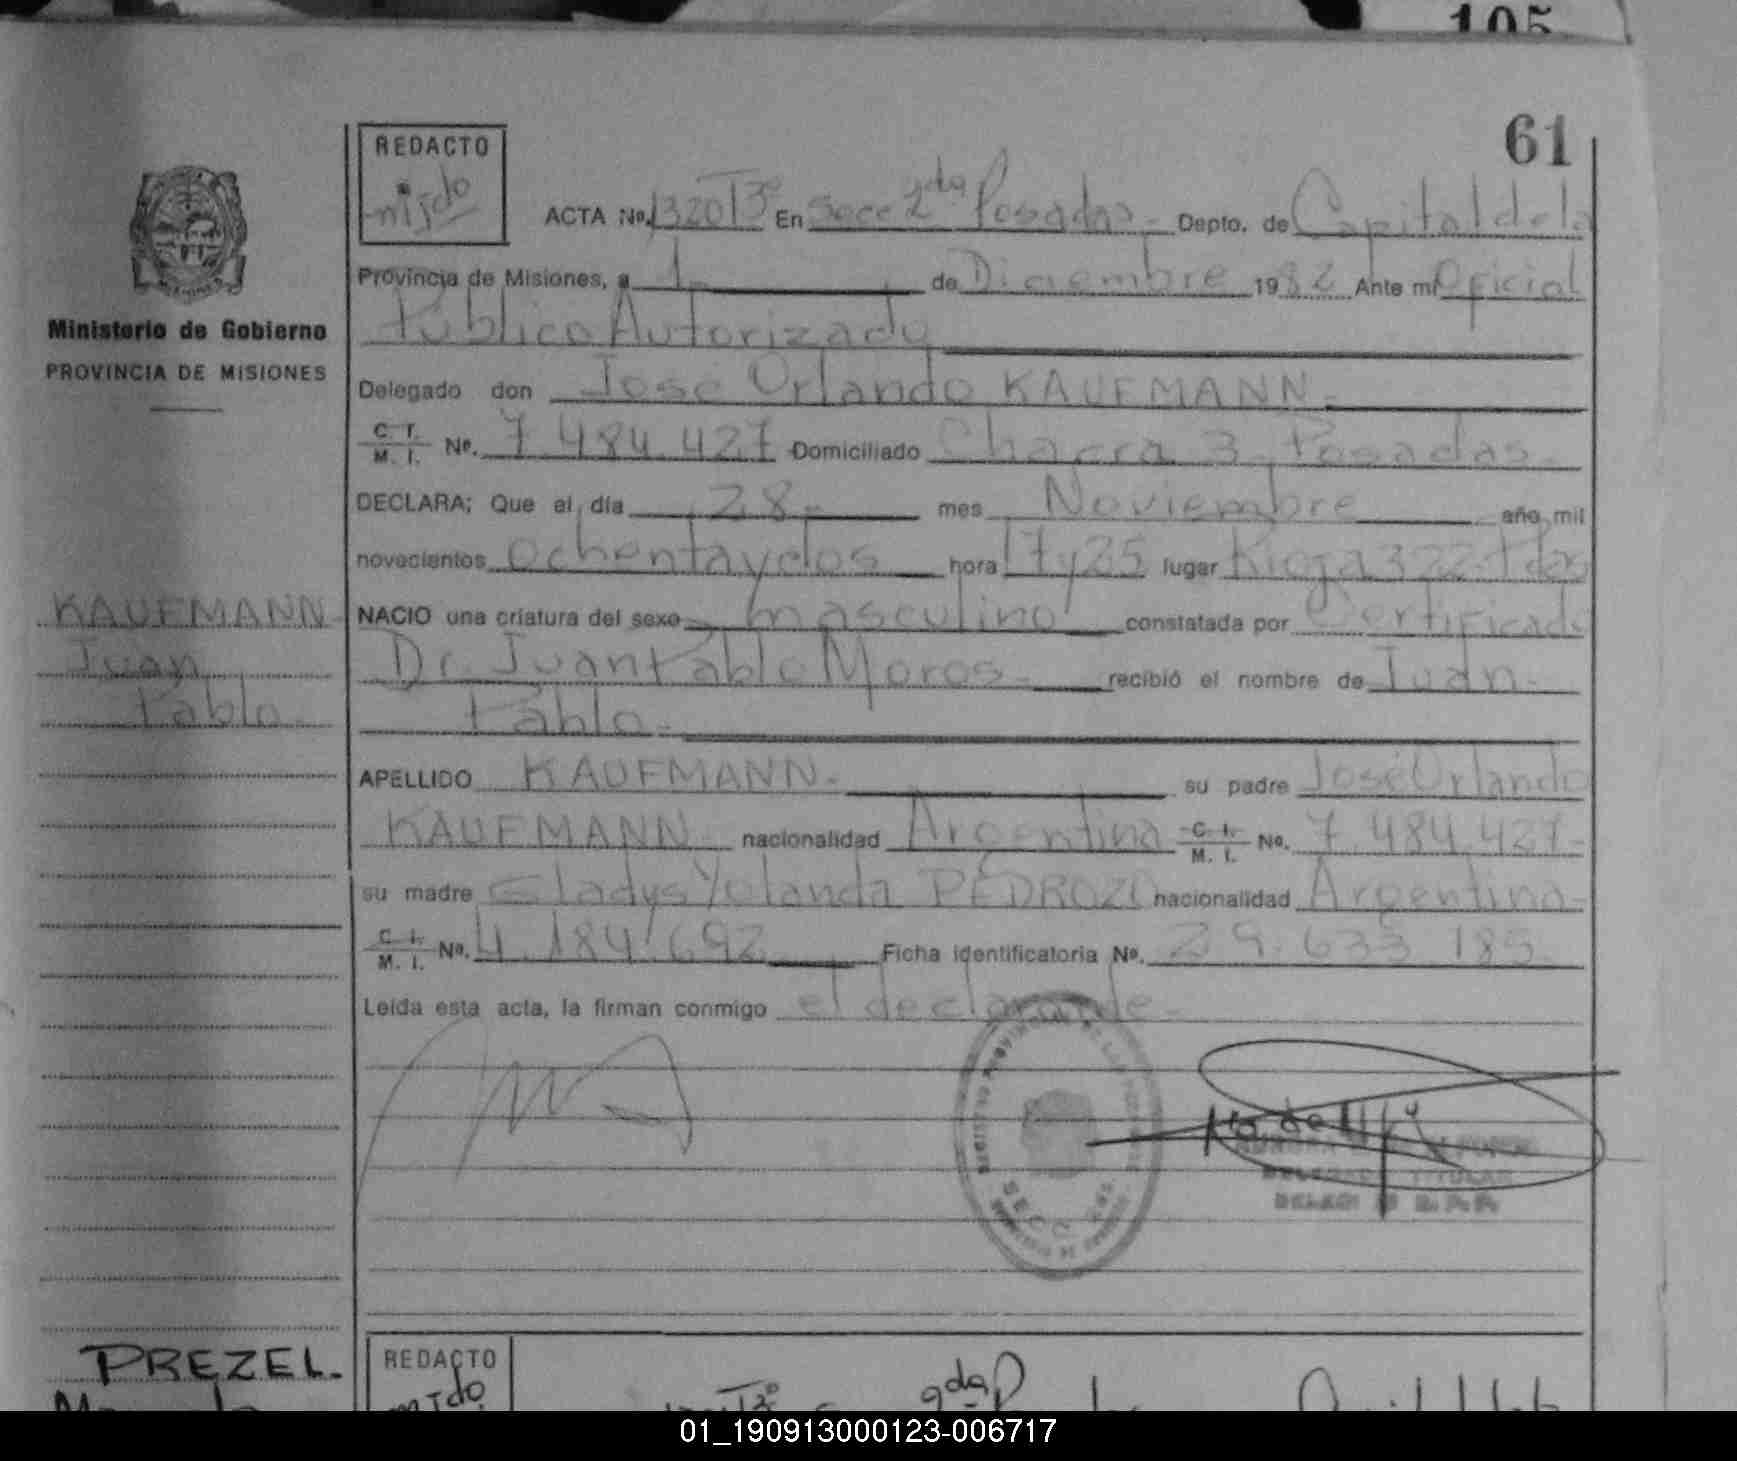 105
61
REDACTO
ACTA No. 1320 T3º En Secc 2da Posadas - Depto. de Capital de la
Provincia de Misiones, a 1 de Diciembre 1982 Ante mi Oficial
Público Autorizado
Ministerio de Gobierno
PROVINCIA DE MISIONES
Delegado don José Orlando KAUFMANN -
C. I. M. I. No. 7.484.427 Domiciliado Chacra 3 - Posadas -
DECLARA; Que el día 28 - mes Noviembre año mil
novecientos ochentaydos hora 17 y 25 lugar Rioja 322 - Pdas
KAUFMANN -
Juan
Pablo -
NACIO una criatura del sexo masculino constatada por Certificado
Dr. Juan Pablo Moros - recibió el nombre de Juan -
Pablo -
APELLIDO KAUFMANN - su padre José Orlando
KAUFMANN - nacionalidad Argentina C. I. M. I. No. 7.484.427 -
su madre Gladys Yolanda PEDROZO nacionalidad Argentina -
C. I. M. I. No. 4.184.692 Ficha identificatoria No. 29.633.185 -
Leída esta acta, la firman conmigo el declarante -
SECC
DELEGADO TITULAR
PREZEL -
REDACTO
2da
01_190913000123-006717